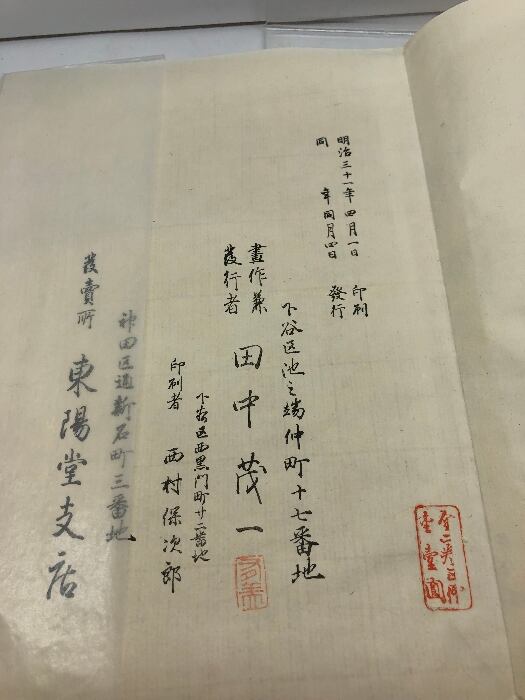 明治三十一年四月一日 印刷
同 年同月四日 發行
下谷区池之端仲町十七番地
畫作兼
發行者 田中茂一
下谷区西黒門町廿二番地
印刷者 西村保次郎
神田区通新石町三番地
發賣所 東陽堂支店
金壹圓